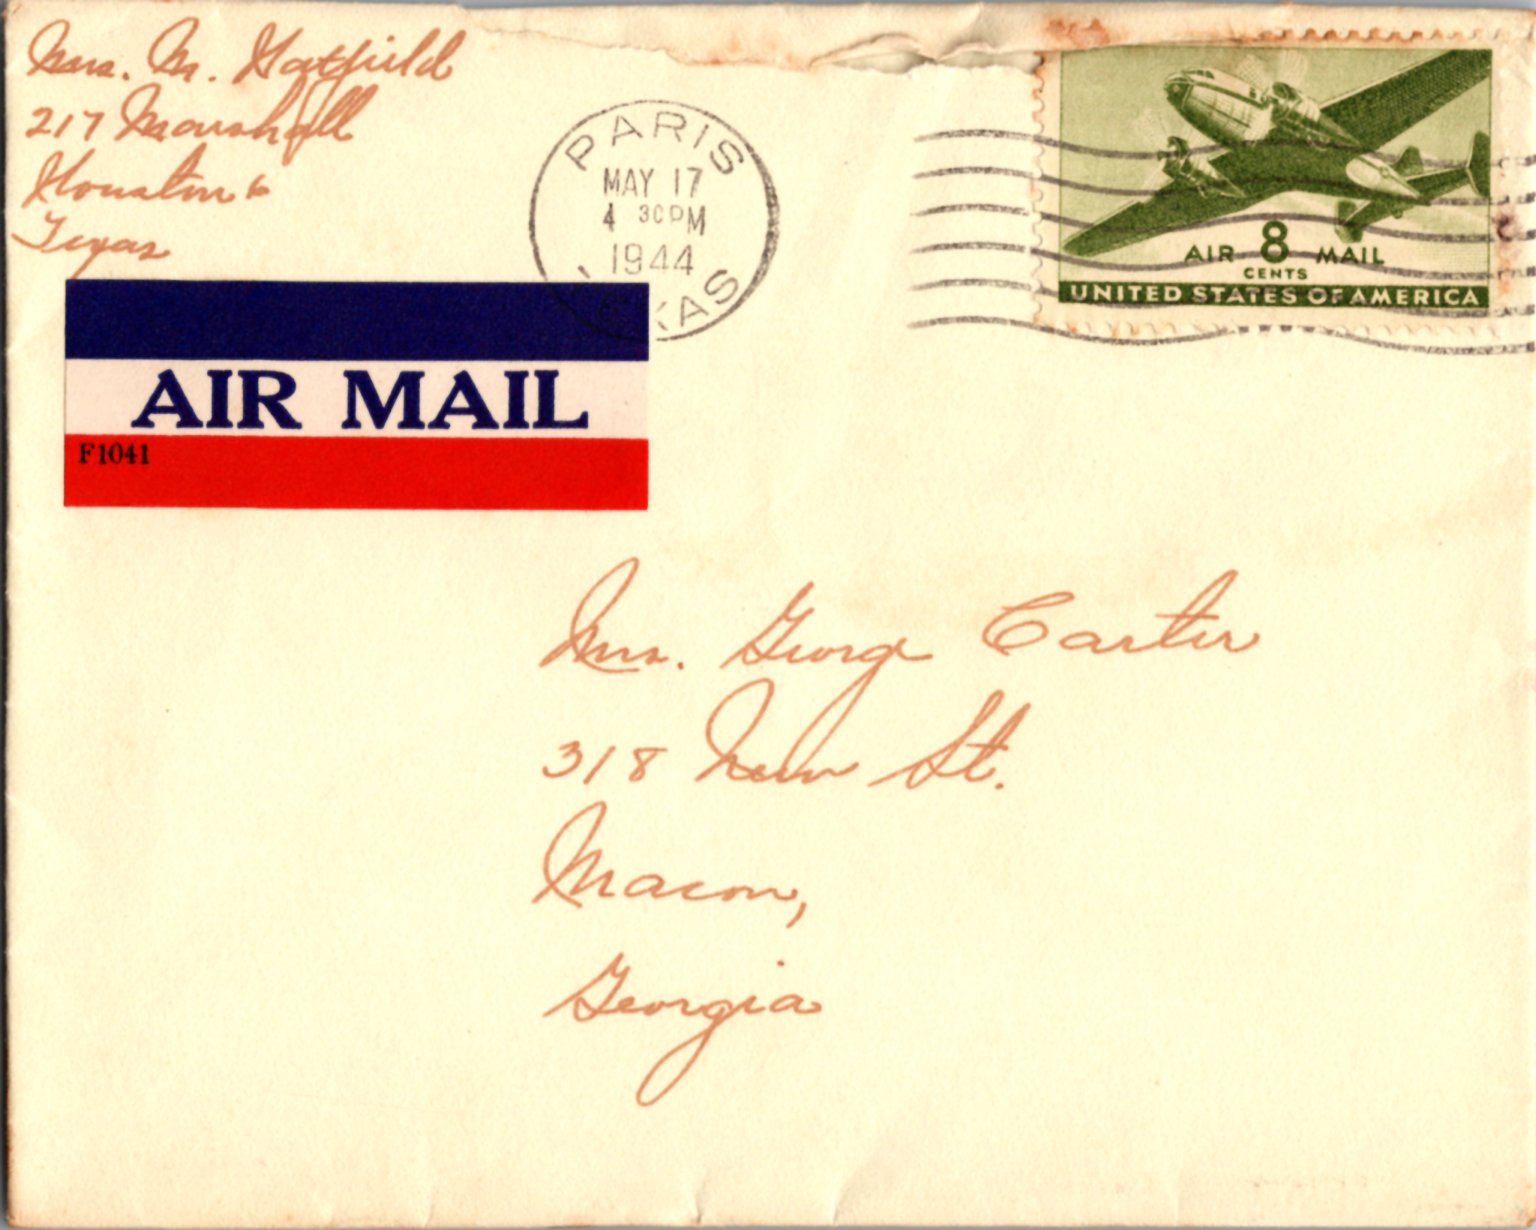 Mrs. M. Hatfield
217 Marshall
Houston 6
Texas
PARIS
MAY 17
4 30PM
1944
TEXAS
AIR 8 MAIL
CENTS
UNITED STATES OF AMERICA
AIR MAIL
F1041
Mrs. George Carter
318 New St.
Macon,
Georgia